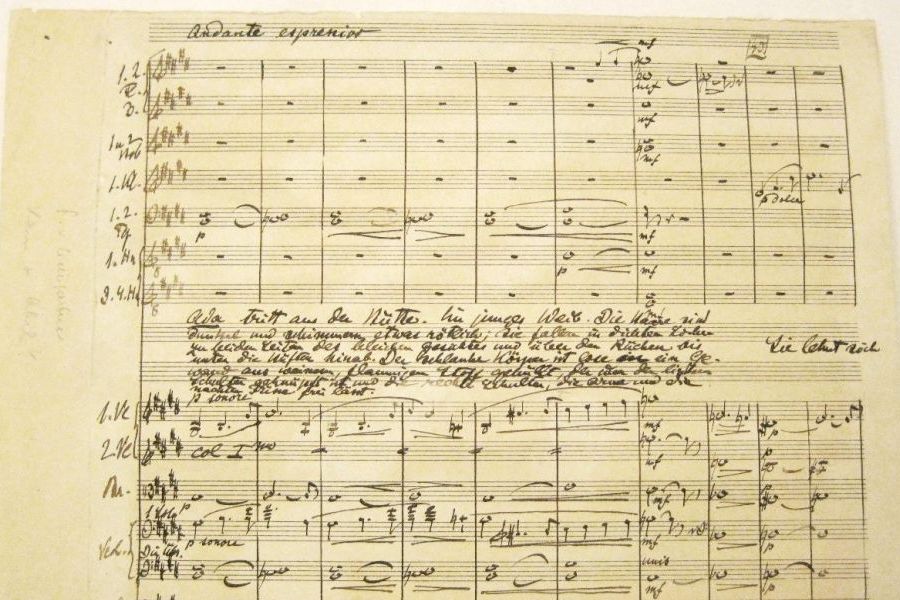 Andante espressivo
mf
1. 2.
mf
mf
1 u 2
mf
1. Kl.
p dolce
1. 2.
Fg
p
mf
1. Hr
p
mf
3. 4. Hr
Ada tritt aus der Hütte. Ein junges Weib. Die Haare sind
dunkel und schimmern etwas rötlich; sie fallen in dichten
zu beiden Seiten des bleichen Gesichtes und über den Rücken bis
unter die Hüften hinab. Der schlanke Körper ist lose in ein Ge-
Sie lehnt sich
wand aus weissem, flaumigen Stoff gehüllt, das über der linken
Schulter geknüpft ist und die rechte Schulter, die Arme und die
frei lässt.
p sonore
1. Vl
mf
2. Vl
col I mo
mf
Br.
p
mf
1 Solo
Vcl.
p sonore
mf
p
Die übr.
unis
mf
p